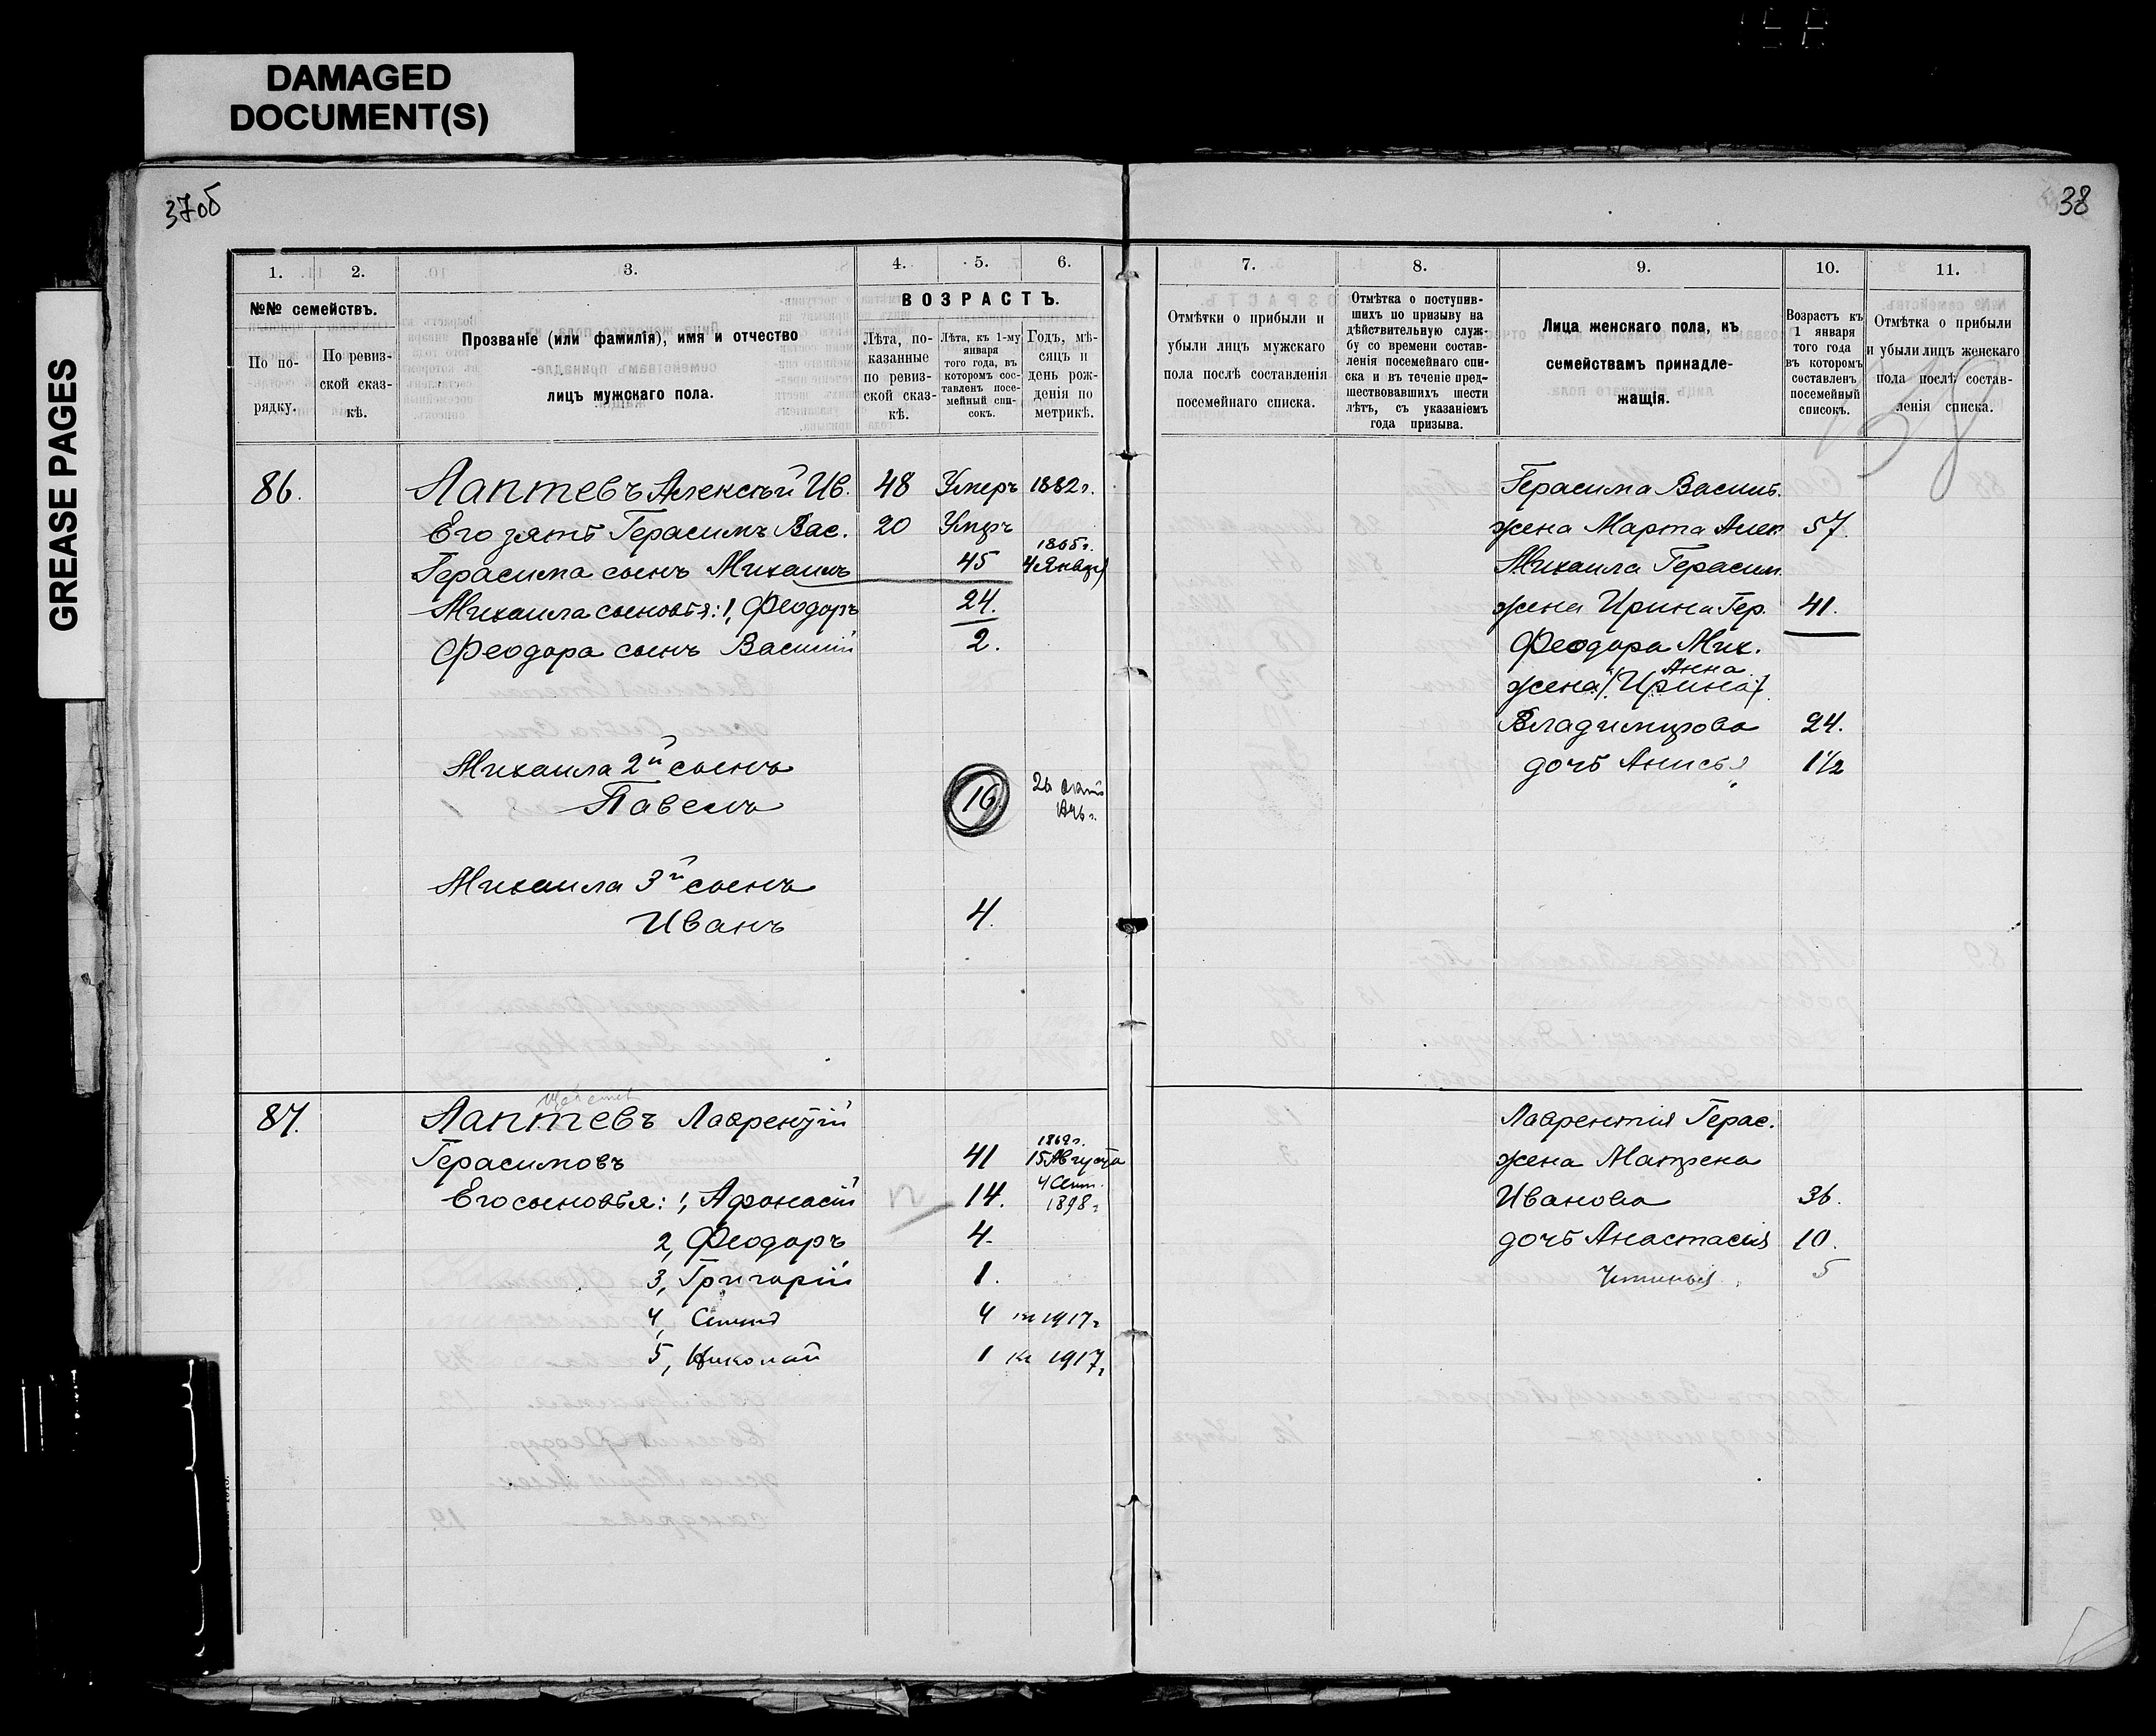 DAMAGED
DOCUMENT(S)
GREASE PAGES
37об
38
1. 2. 3. 4. 5. 6.
№№ семействъ.
По по-
рядку.
По ревиз-
ской сказ-
кѣ.
Прозваніе (или фамилія), имя и отчество
лицъ мужскаго пола.
ВОЗРАСТЪ.
Лѣта, по-
казанные
по ревиз-
ской сказ-
кѣ.
Лѣта, къ 1-му
января
того года, въ
которомъ сос-
тавленъ посе-
мейный спи-
сокъ.
Годъ, мѣ-
сяцъ и
день рож-
денія по
метрикѣ.
86. Лаптевъ Алексѣй Ив. 48 Умеръ 1882г.
Его зять Герасимъ Вас. 20 Умеръ
1865г.
Герасима сынъ Михаилъ 45 4 Января
Михаила сыновья: 1, Феодоръ 24.
Феодора сынъ Василій 2.
Михаила 2й сынъ
Павелъ 16
Михаила 3й сынъ
Иванъ 4.
87. Лаптевъ Лаврентій
1869г.
Герасимовъ 41 15 Августа
4 Сент.
Его сыновья: 1, Афонасій 14. 1898г
2, Феодоръ 4.
3, Григорій 1.
4, Семенъ 4 къ 1917г
5, Николай 1 къ 1917г
7. 8. 9. 10. 11.
Отмѣтки о прибыли и
убыли лицъ мужскаго
пола послѣ составленія
посемейнаго списка.
Отмѣтка о поступив-
шихъ по призыву на
дѣйствительную служ-
бу со времени состав-
ленія посемейнаго спи-
ска и въ теченіе пред-
шествовавшихъ шести
лѣтъ, съ указаніемъ
года призыва.
Лица женскаго пола, къ
семействамъ принадле-
жащія.
Возрастъ къ
1 января
того года
въ которомъ
составленъ
посемейный
списокъ.
Отмѣтка о прибыли
и убыли лицъ женскаго
пола послѣ состав-
ленія списка.
38
Герасима Васил.
жена Марта Алек. 57.
Михаила Герасим.
жена Ирина Гер. 41.
Феодора Мих.
Анна
жена (Ирина)
Владимирова 24.
дочь Анисья 1 1/2
Лаврентія Герас.
жена Матрена
Иванова 36.
дочь Анастасія 10.
5